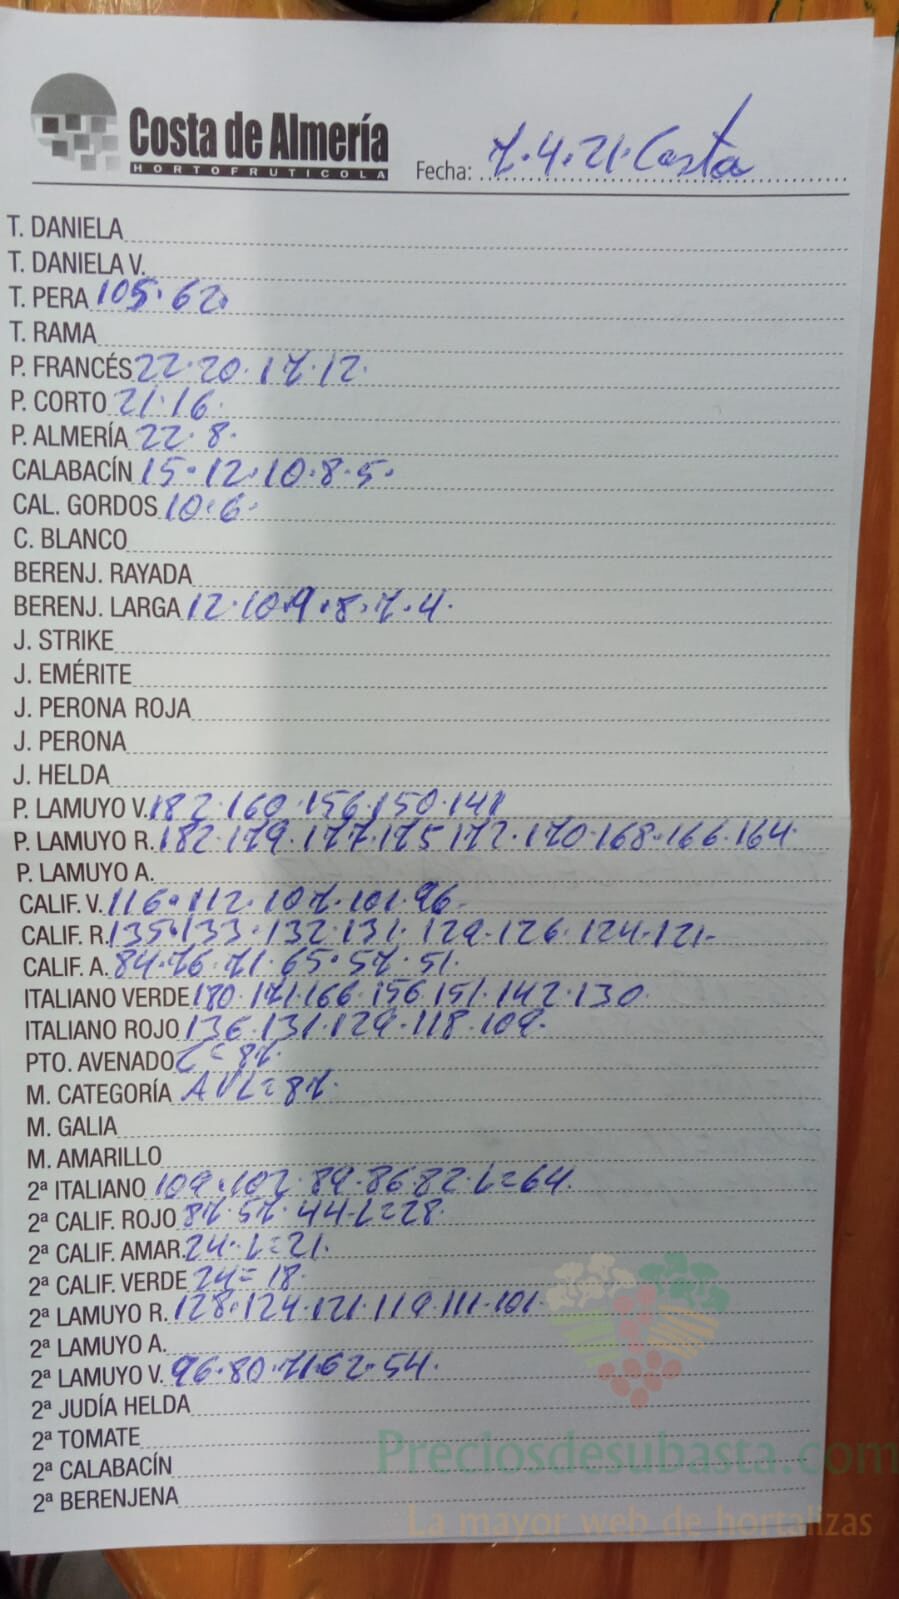 Costa de Almería
HORTOFRUTICOLA
Fecha: 7.4.21. Costa
T. DANIELA
T. DANIELA V.
T. PERA 105.62.
T. RAMA
P. FRANCÉS 22.20.17.12.
P. CORTO 21.16.
P. ALMERÍA 22.8.
CALABACÍN 15.12.10.8.5.
CAL. GORDOS 10.6.
C. BLANCO
BERENJ. RAYADA
BERENJ. LARGA 12.10.9.8.7.4.
J. STRIKE
J. EMÉRITE
J. PERONA ROJA
J. PERONA
J. HELDA
P. LAMUYO V. 182.160.156.150.141
P. LAMUYO R. 182.179.177.175.172.170.168.166.164.
P. LAMUYO A.
CALIF. V. 116.112.107.101.96.
CALIF. R. 135.133.132.131.129.126.124.121-
CALIF. A. 84.76.71.65.57.51.
ITALIANO VERDE 180.171.166.156.151.142.130.
ITALIANO ROJO 136.131.129.118.109.
PTO. AVENADO L=87.
M. CATEGORÍA AVL=87.
M. GALIA
M. AMARILLO
2ª ITALIANO 109.102.89.86.82.L=64.
2ª CALIF. ROJO 87.57.44-L=28.
2ª CALIF. AMAR. 24.L=21.
2ª CALIF. VERDE 24=18.
2ª LAMUYO R. 128.124.121.119.111.101.
2ª LAMUYO A.
2ª LAMUYO V. 96.80.71.62.54.
2ª JUDÍA HELDA
2ª TOMATE
2ª CALABACÍN
2ª BERENJENA
Preciosdesubasta.com
La mayor web de hortalizas